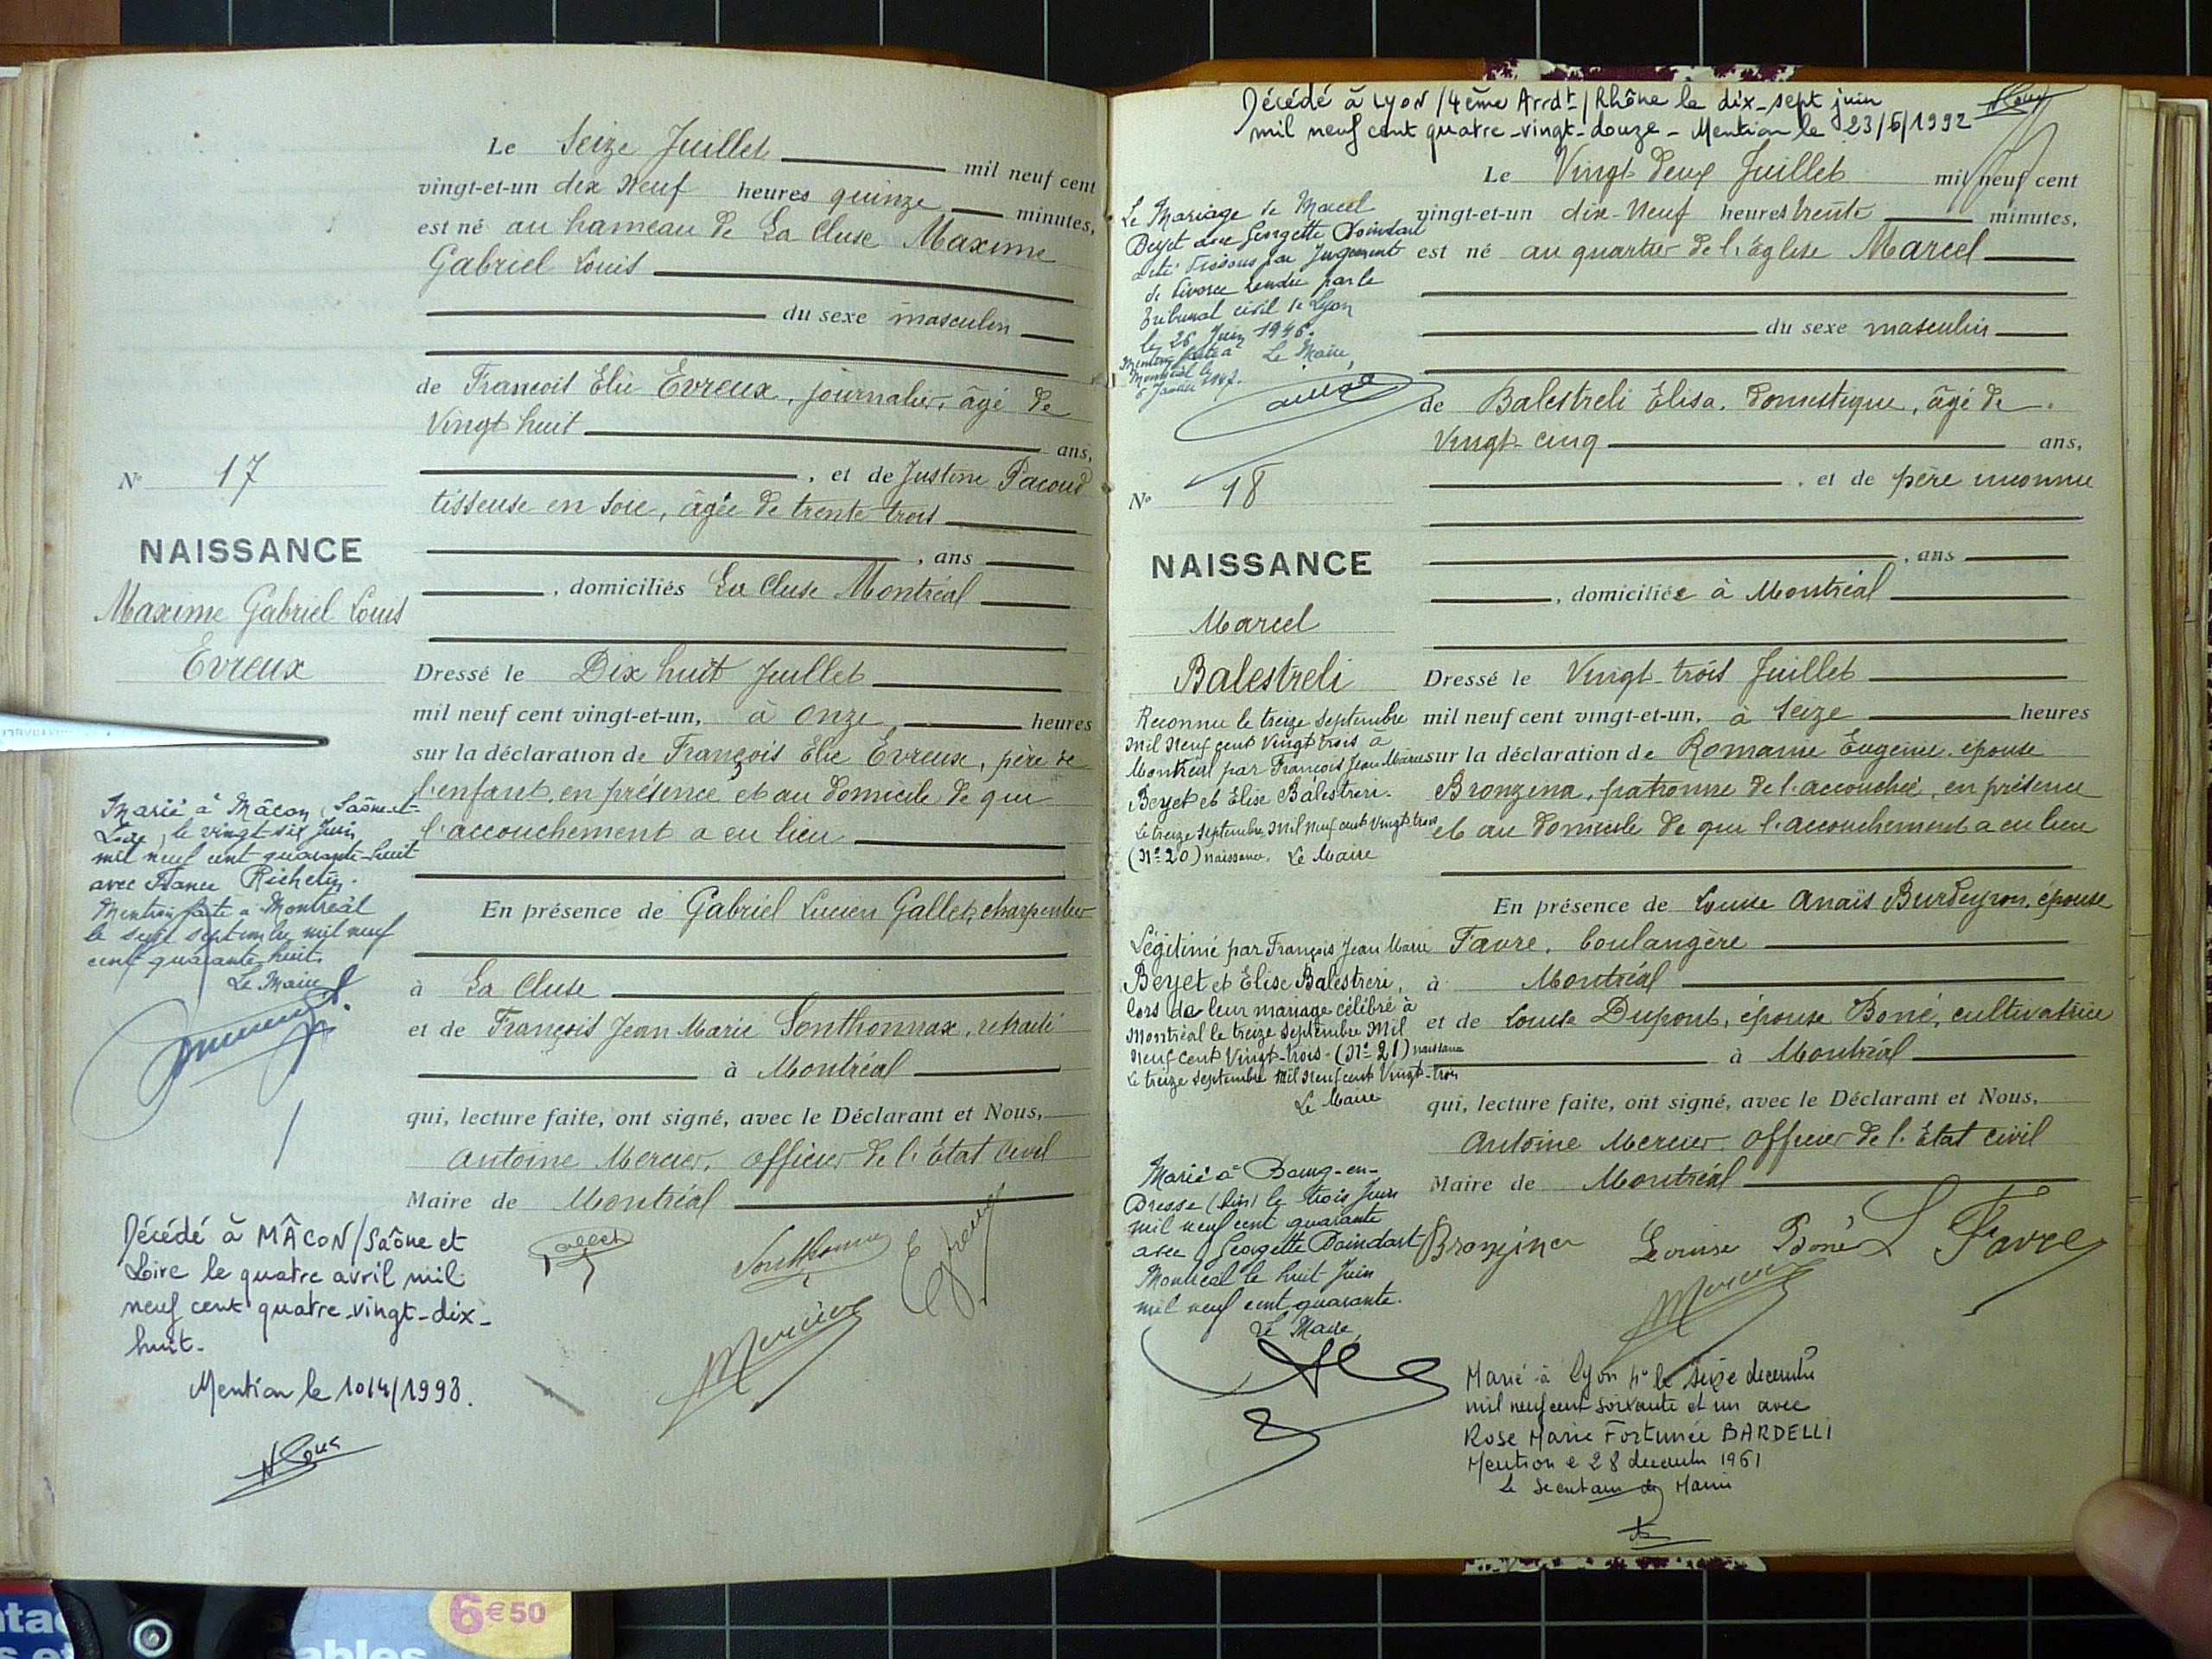 Le Seize Juillet mil neuf cent
vingt-et-un dix Neuf heures quinze minutes,
est né au hameau de La Cluse Maxime
Gabriel Louis
du sexe masculin
de François Elie Evreux, journalier, âgé de
Vingt huit ans,
, et de Justine Pacoud
tisseuse en soie, âgée de trente trois
, ans
, domiciliés La Cluse Montréal
Dressé le Dix huit Juillet
mil neuf cent vingt-et-un, à Onze heures
sur la déclaration de François Elie Evreux, père de
l'enfant, en présence et au domicile de qui
l'accouchement a eu lieu
En présence de Gabriel Lucien Gallet, charpentier
à La Cluse
et de François Jean Marie Sonthonnax, retraité
à Montréal
qui, lecture faite, ont signé, avec le Déclarant et Nous,
Antoine Mercier, officier de l'Etat Civil
Maire de Montréal
Gallet Sonthonnax
Mercier
N° 17
NAISSANCE
Maxime Gabriel Louis
Evreux
Marié à Mâcon, Saône-et-
Loire, le vingt-six Juin
mil neuf cent quarante-huit
avec France Richelin.
Mention faite à Montréal
le seize septembre mil neuf
cent quarante huit.
Le Maire
Décédé à MÂCON/Saône et
Loire le quatre avril mil
neuf cent quatre-vingt-dix-
huit-
Mention le 10/4/1998.
Décédé à Lyon /4ème Arrdt/Rhône le dix-sept juin
mil neuf cent quatre-vingt-douze - Mention le 23/6/1992
Le Vingt Deux Juillet mil neuf cent
vingt-et-un dix-Neuf heures trente minutes,
est né au quartier de l'église Marcel
du sexe masculin
de Balestreli Elisa, Domestique, âgé de
Vingt-cinq ans,
, et de père inconnu
, ans
, domiciliée à Montréal
Dressé le Vingt-trois Juillet
mil neuf cent vingt-et-un, à Seize heures
sur la déclaration de Romanie Eugénie, épouse
Bronzina, patronne de l'accouchée, en présence
et au domicile de qui l'accouchement a eu lieu
En présence de Louise Anaïs Burdeyron, épouse
Favre, boulangère
à Montréal
et de Louise Dupont, épouse Boné, cultivatrice
à Montréal
qui, lecture faite, ont signé, avec le Déclarant et Nous,
Antoine Mercier, officier de l'Etat civil
Maire de Montréal
Bronzina Louise Boné L Favre
Mercier
Le Mariage de Marcel
Beyet avec Georgette Doindart
a été dissous par Jugement
de divorce rendu par le
Tribunal civil de Lyon
le 26 Juin 1946.
Mention faite à
Montréal le
6 Janvier 1947.
Le Maire,
N° 18
NAISSANCE
Marcel
Balestreli
Reconnu le treize Septembre
Mil Neuf cent Vingt trois à
Montréal par François Jean Marie
Beyet et Elise Balestreri.
Le treize Septembre Mil Neuf cent Vingt trois
(N° 20) naissance. Le Maire
Légitimé par François Jean Marie
Beyet et Elise Balestreri,
lors de leur mariage célébré à
Montréal le treize Septembre Mil
Neuf cent Vingt-trois - (N° 21) naissance
Le treize Septembre Mil Neuf cent Vingt-trois
Le Maire
Marié à Bourg-en-
Bresse (Ain) le trois Juin
mil neuf cent quarante
avec Georgette Doindart
Montréal le huit Juin
mil neuf cent quarante.
Le Maire,
Marié à Lyon 4° le seize decembre
mil neuf cent soixante et un avec
Rose Marie Fortunée BARDELLI
Mention le 28 decembre 1961
Le Secretaire de Mairie
6€50
ables